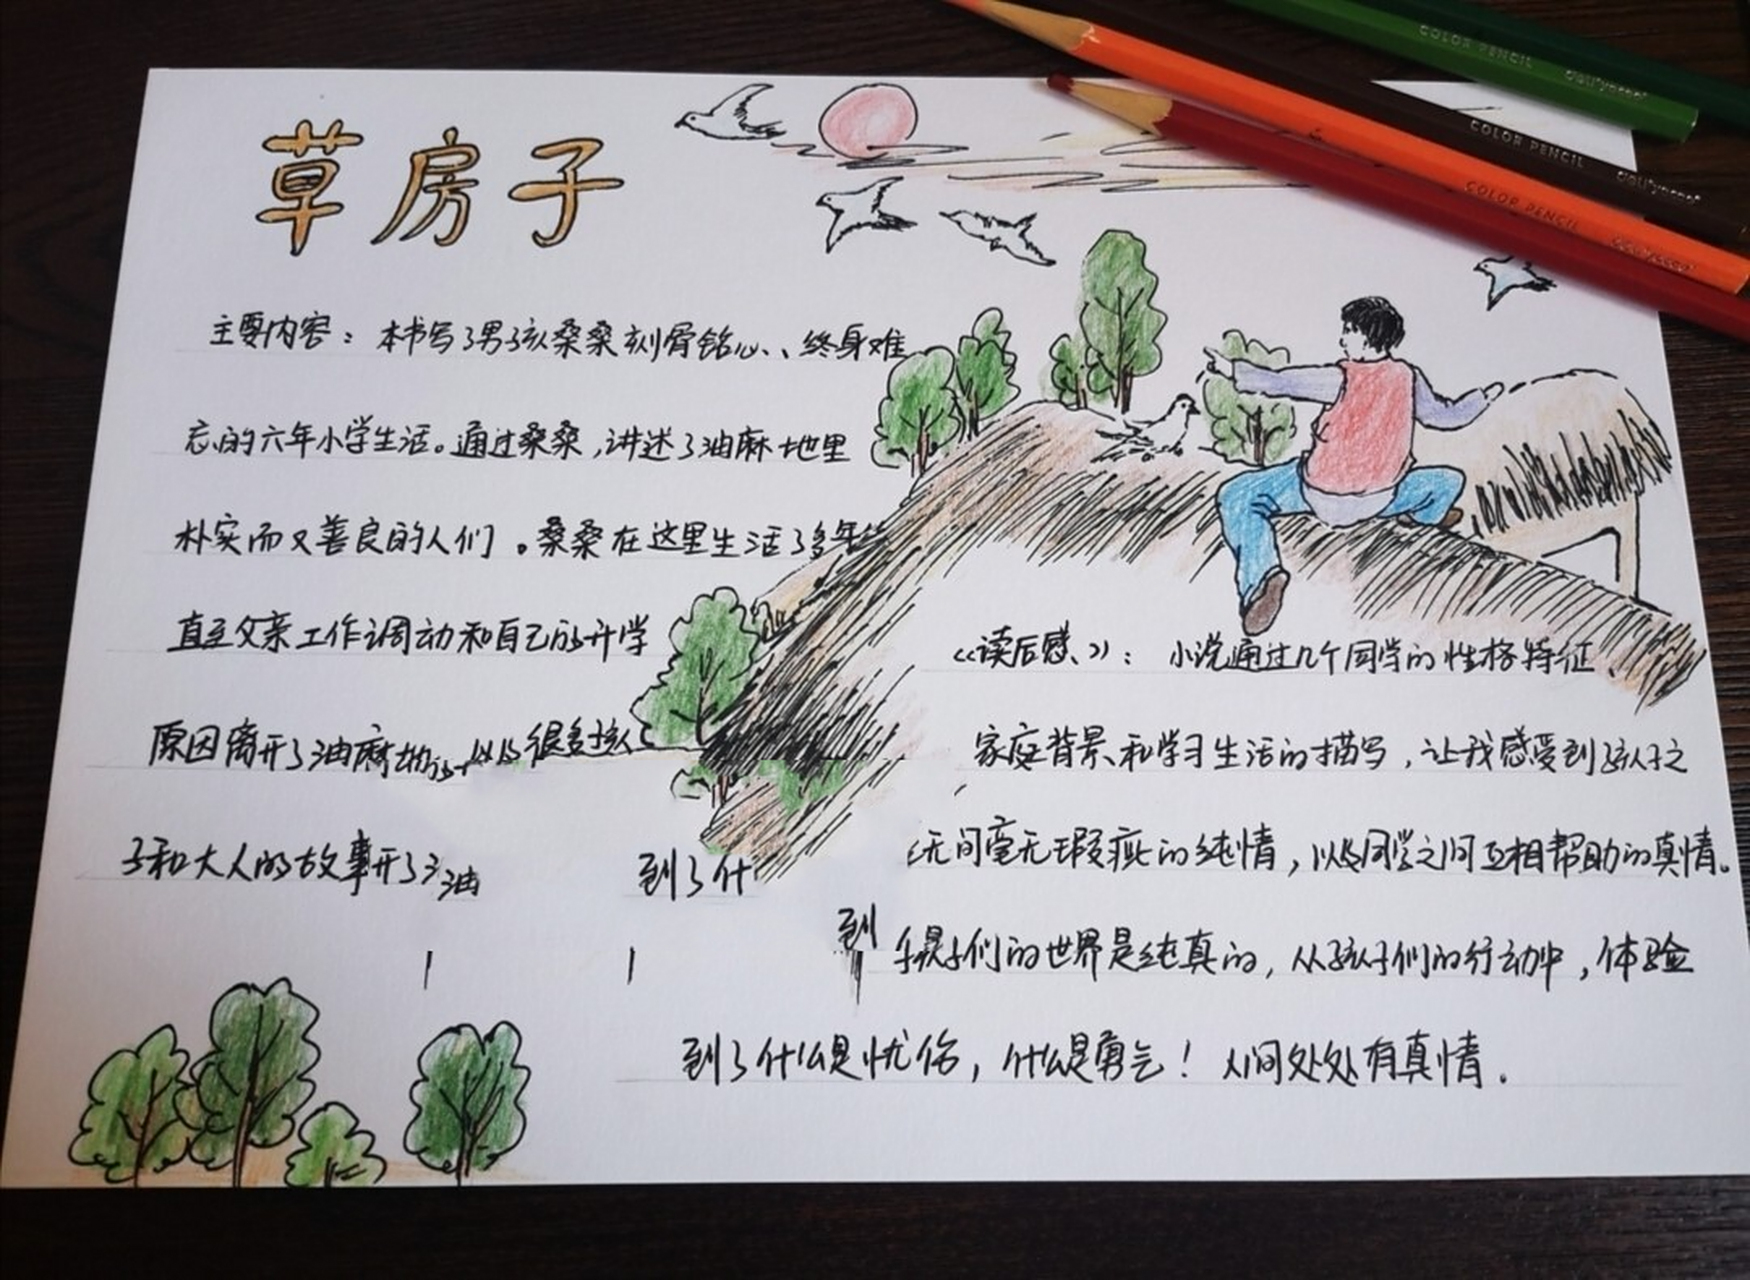 草房子
主要内容：本书写了男孩桑桑刻骨铭心、终身难
忘的六年小学生活。通过桑桑，讲述了油麻地里
朴实而又善良的人们。桑桑在这里生活了多年
直至父亲工作调动和自己的升学
原因离开了油麻地 以及很多孩
子和大人的故事开了 油
到了什
到
《读后感》：小说通过几个同学的性格特征、
家庭背景、和学习生活的描写，让我感受到孩子之
间毫无瑕疵的纯情，以及同学之间互相帮助的真情。
子们的世界是纯真的，从孩子们的行动中，体验
到了什么是忧伤，什么是勇气！人间处处有真情.
COLOR PENCIL deli
COLOR PENCIL deli
COLOR PENCIL